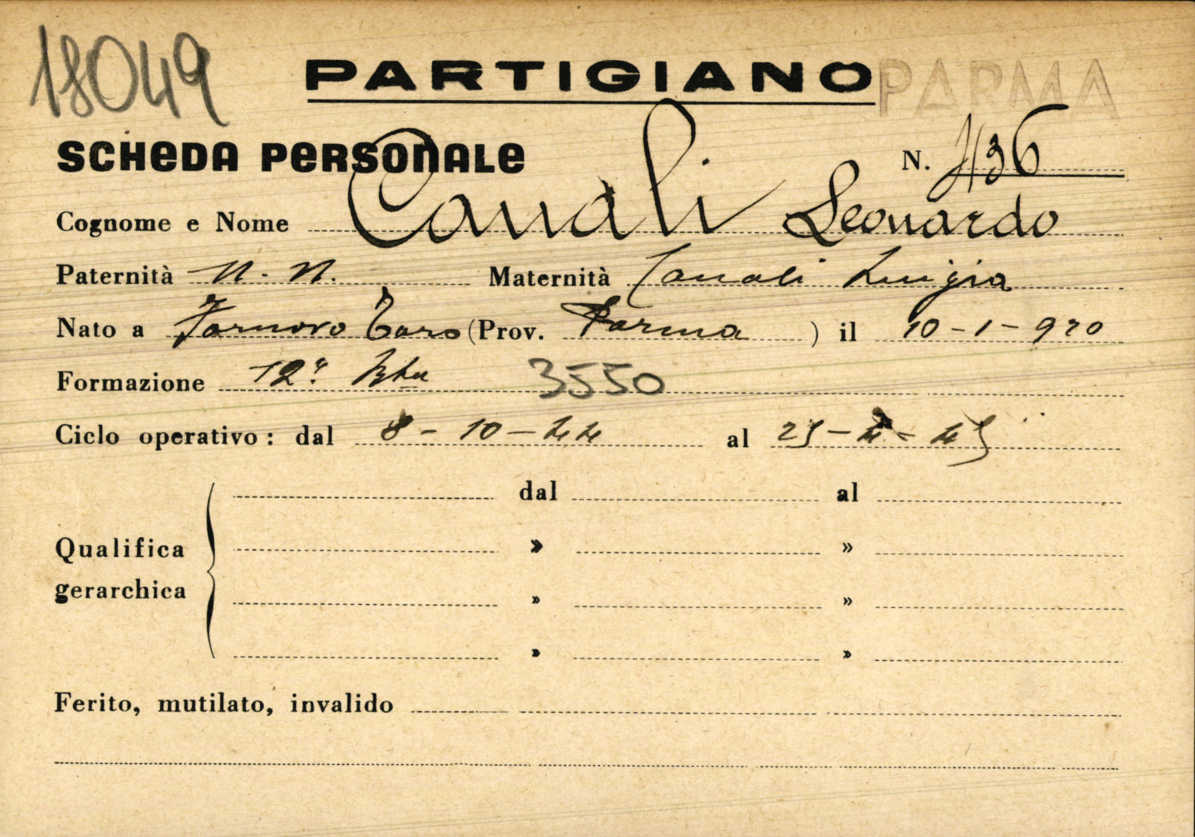 18049
PARTIGIANO PARMA
SCHEDA PERSONALE N. 1136
Cognome e Nome Canali Leonardo
Paternità N. N. Maternità Canali Luigia
Nato a Fornovo Taro (Prov. Parma ) il 10-1-920
Formazione 12ª Bta 3550
Ciclo operativo: dal 8-10-44 al 25-4-45
dal al
Qualifica » »
gerarchica » »
» »
Ferito, mutilato, invalido